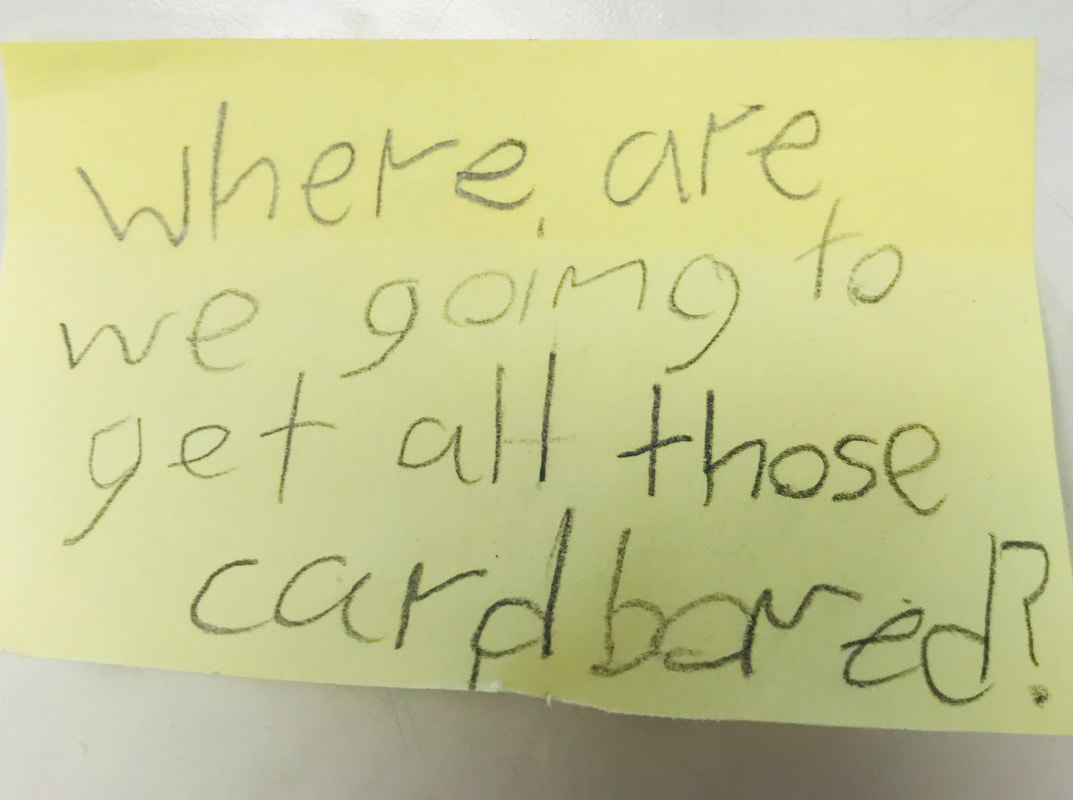 where are
we going to
get all those
cardbored?